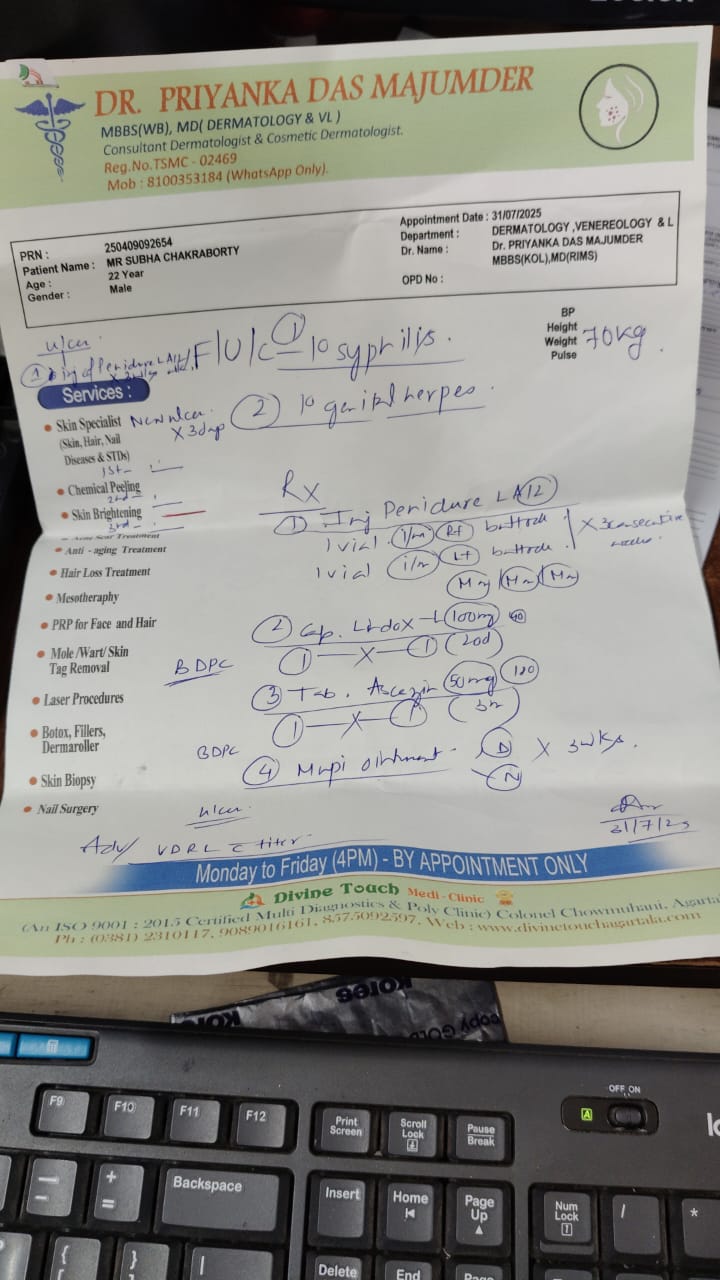 DR. PRIYANKA DAS MAJUMDER
MBBS(WB), MD( DERMATOLOGY & VL )
Consultant Dermatologist & Cosmetic Dermatologist.
Reg.No.TSMC - 02469
Mob : 8100353184 (WhatsApp Only).
PRN : 250409092654
Patient Name : MR SUBHA CHAKRABORTY
Age : 22 Year
Gender : Male
Appointment Date : 31/07/2025
Department : DERMATOLOGY ,VENEREOLOGY & L
Dr. Name : Dr. PRIYANKA DAS MAJUMDER
MBBS(KOL),MD(RIMS)
OPD No :
BP
Height
Weight 70kg
Pulse
ulcer
F/U/C ① 1o syphilis.
② 1o genital herpes.
Services :
Skin Specialist
(Skin, Hair, Nail
Diseases & STDs)
New ulcer
X 3days
1st -
Chemical Peeling
2nd -
Skin Brightening
3rd -
Acne Scar Treatment
Anti - aging Treatment
Hair Loss Treatment
Mesotheraphy
PRP for Face and Hair
Mole /Wart/ Skin
Tag Removal
Laser Procedures
Botox, Fillers,
Dermaroller
Skin Biopsy
Nail Surgery
Rx
① Inj Penidure LA12
1 vial i/m Rt buttock
1 vial i/m Lt buttock
X 3 consecutive
weeks.
② Cap. 100mg
① — X — ① (20d)
BDPC
③ Tab. 50mg
① — X — ①
BDPC
④ Mupi ointment - D
N
X 3wks.
ulcer
31/7/25
Adv/ VDRL c titer
Monday to Friday (4PM) - BY APPOINTMENT ONLY
Divine Touch Medi - Clinic
(An ISO 9001 : 2015 Certified Multi Diagnostics & Poly Clinic) Colonel Chowmuhani, Agarta
Ph : (0381) 2310117, 9089016161, 8575092597, Web : www.divinetouchagartala.com
Kores
copy
F9
F10
F11
F12
Print
Screen
Scroll
Lock
Pause
Break
OFF ON
A
Backspace
Insert
Home
Page
Up
Num
Lock
/
*
Delete
End
Page